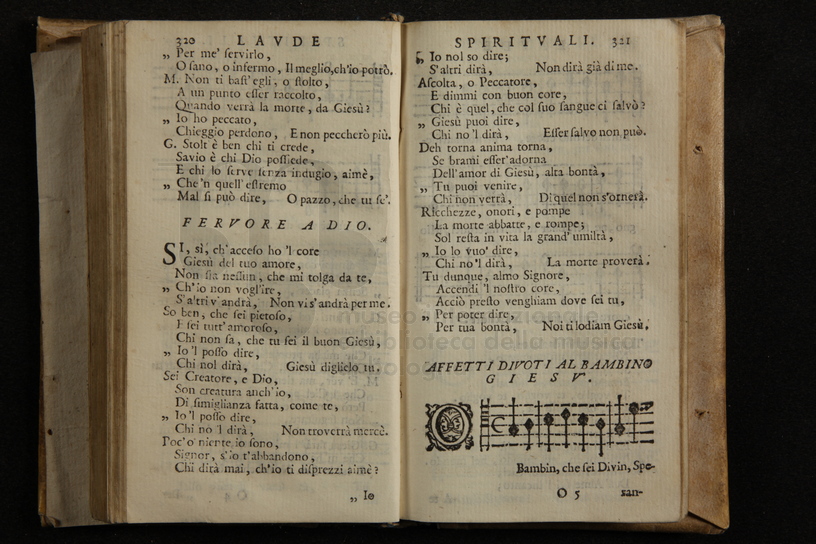 320 LAVDE
„ Per me' ſervirlo,
O ſano, o infermo, Il meglio, ch'io potrò.
M. Non ti baſt' egli, o ſtolto,
A un punto eſſer raccolto,
Quando verrà la morte, da Giesù?
„ Io ho peccato,
Chieggio perdono, E non peccherò più.
G. Stolt' è ben chi ti crede,
Savio è chi Dio poſſiede,
E chi lo ſerve ſenza indugio, aimè,
„ Che 'n quell' eſtremo
Mal ſi può dire, O pazzo, che tu ſe'.
FERVORE A DIO.
SI, sì, ch' acceſo ho 'l core
Giesù del tuo amore,
Non ſia neſſun, che mi tolga da te,
„ Ch' io non vogl' ire,
S'altri v' andrà, Non vi s'andrà per me.
So ben, che ſei pietoſo,
E ſei tutt' amoroſo,
Chi non ſa, che tu ſei il buon Giesù,
„ Io 'l poſſo dire,
Chi nol dirà, Giesù diglielo tu.
Sei Creatore, e Dio,
Son creatura anch' io,
Di ſimiglianza fatta, come te,
„ Io 'l poſſo dire,
Chi no 'l dirà, Non troverrà mercè.
Poc' o niente io ſono,
Signor, s'io t'abbandono,
Chi dirà mai, ch'io ti diſprezzi aimè?
„ Io
SPIRITVALI. 321
„ Io nol so dire;
S'altri dirà, Non dirà già di me.
Aſcolta, o Peccatore,
E dimmi con buon core,
Chi è quel, che col ſuo ſangue ci ſalvò?
„ Giesù puoi dire,
Chi no 'l dirà, Eſſer ſalvo non può.
Deh torna anima torna,
Se brami eſſer' adorna
Dell' amor di Giesù, alta bontà,
„ Tu puoi venire,
Chi non verrà, Di quel non s'ornerà.
Ricchezze, onori, e pompe
La morte abbatte, e rompe;
Sol reſta in vita la grand' umiltà,
„ Io lo vuo' dire,
Chi no 'l dirà, La morte proverà.
Tu dunque, almo Signore,
Accendi 'l noſtro core,
Acciò preſto venghiam dove ſei tu,
„ Per poter dire,
Per tua bontà, Noi ti lodiam Giesù.
AFFETTI DIVOTI AL BAMBINO
GIESV.
Bambin, che ſei Divin, Spe-
O 5 ran-